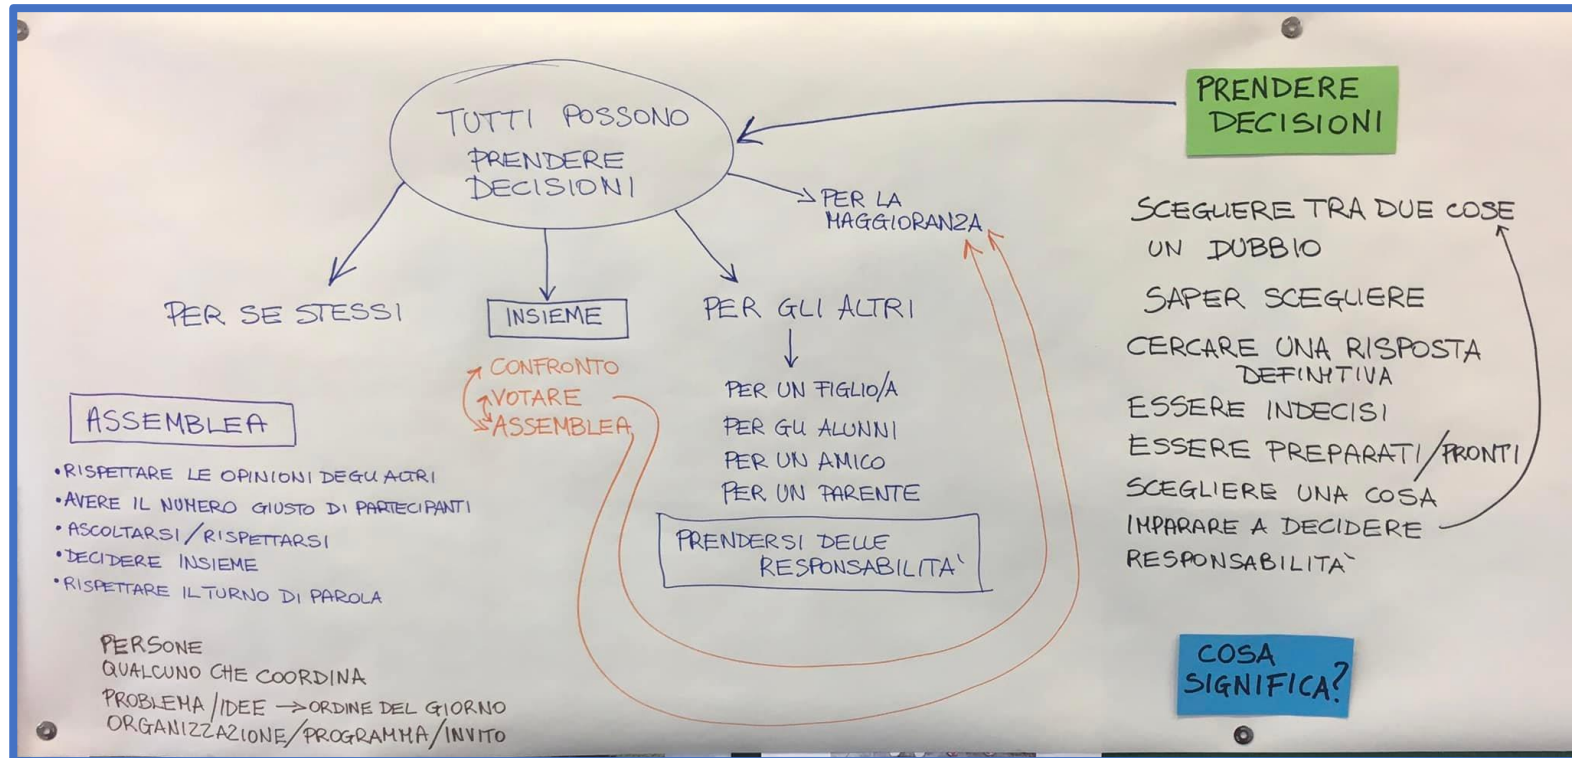 TUTTI POSSONO
PRENDERE
DECISIONI
PER SE STESSI
INSIEME
CONFRONTO
VOTARE
ASSEMBLEA
PER GLI ALTRI
PER UN FIGLIO/A
PER GLI ALUNNI
PER UN AMICO
PER UN PARENTE
PRENDERSI DELLE
RESPONSABILITA'
PER LA
MAGGIORANZA
ASSEMBLEA
•RISPETTARE LE OPINIONI DEGLI ALTRI
•AVERE IL NUMERO GIUSTO DI PARTECIPANTI
•ASCOLTARSI/RISPETTARSI
•DECIDERE INSIEME
•RISPETTARE IL TURNO DI PAROLA
PERSONE
QUALCUNO CHE COORDINA
PROBLEMA/IDEE → ORDINE DEL GIORNO
ORGANIZZAZIONE/PROGRAMMA/INVITO
PRENDERE
DECISIONI
SCEGLIERE TRA DUE COSE
UN DUBBIO
SAPER SCEGLIERE
CERCARE UNA RISPOSTA
DEFINITIVA
ESSERE INDECISI
ESSERE PREPARATI/PRONTI
SCEGLIERE UNA COSA
IMPARARE A DECIDERE
RESPONSABILITA'
COSA
SIGNIFICA?